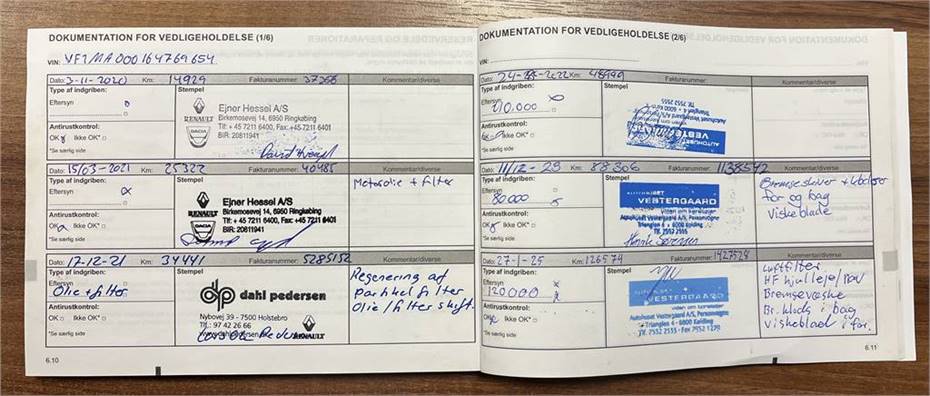 DOKUMENTATION FOR VEDLIGEHOLDELSE (1/6)
VIN: VF1MA000164769654
Dato: 3-11-2020 Km: 14929 Fakturanummer: 37368 Kommentar/diverse
Type af indgriben: Stempel
Eftersyn
RENAULT
DACIA
Ejner Hessel A/S
Birkemosevej 14, 6950 Ringkøbing
Tlf: + 45 7211 6400, Fax: +45 7211 6401
BIR: 20811941
Antirustkontrol:
OK Ikke OK*
*Se særlig side
Dato: 15/03-2021 Km: 25322 Fakturanummer: 40485 Kommentar/diverse
Type af indgriben: Stempel
Motorolie + filter
Eftersyn
RENAULT
DACIA
Ejner Hessel A/S
Birkemosevej 14, 6950 Ringkøbing
Tlf: + 45 7211 6400, Fax: +45 7211 6401
BIR: 20811941
Antirustkontrol:
OK Ikke OK*
*Se særlig side
Dato: 17-12-21 Km: 34441 Fakturanummer: 5285152 Kommentar/diverse
Type af indgriben: Stempel
Eftersyn
Olie + filter
dahl pedersen
Nybovej 39 - 7500 Holstebro
Tlf.: 97 42 26 66
RENAULT
Regenering af
Partikel filter
Olie/filter skift.
Antirustkontrol:
OK Ikke OK*
*Se særlig side
6.10
DOKUMENTATION FOR VEDLIGEHOLDELSE (2/6)
VIN:
Dato: 24- -2022 Km: 48999 Fakturanummer: Kommentar/diverse
Type af indgriben: Stempel
Eftersyn
Tlf. 7552 2555
Trianglen 4 - 6000 Kolding
Autohuset Vestergaard A/S, Personvogne
VESTERGAARD
AUTOHUSET
Antirustkontrol:
OK Ikke OK*
*Se særlig side
Dato: 11/12-23 Km: 88306 Fakturanummer: 1138542 Kommentar/diverse
Type af indgriben: Stempel
Eftersyn
80.000
AUTOHUSET
VESTERGAARD
Viden om køreglæde
Autohuset Vestergaard A/S, Personvogne
Trianglen 4 - 6000 Kolding
Tlf. 7552 2555
Bremseskiver + klodser
for og bag
Viskeblade
Antirustkontrol:
OK Ikke OK*
*Se særlig side
Dato: 27-1-25 Km: 126574 Fakturanummer: 1427524 Kommentar/diverse
Type af indgriben: Stempel
Eftersyn
120000
VESTERGAARD
Autohuset Vestergaard A/S, Personvogne
Trianglen 4 - 6000 Kolding
Luftfilter
HF hjulleje
Bremsevæske
Br. klods i bag
Viskeblad i for.
Antirustkontrol:
OK Ikke OK*
*Se særlig side
6.11